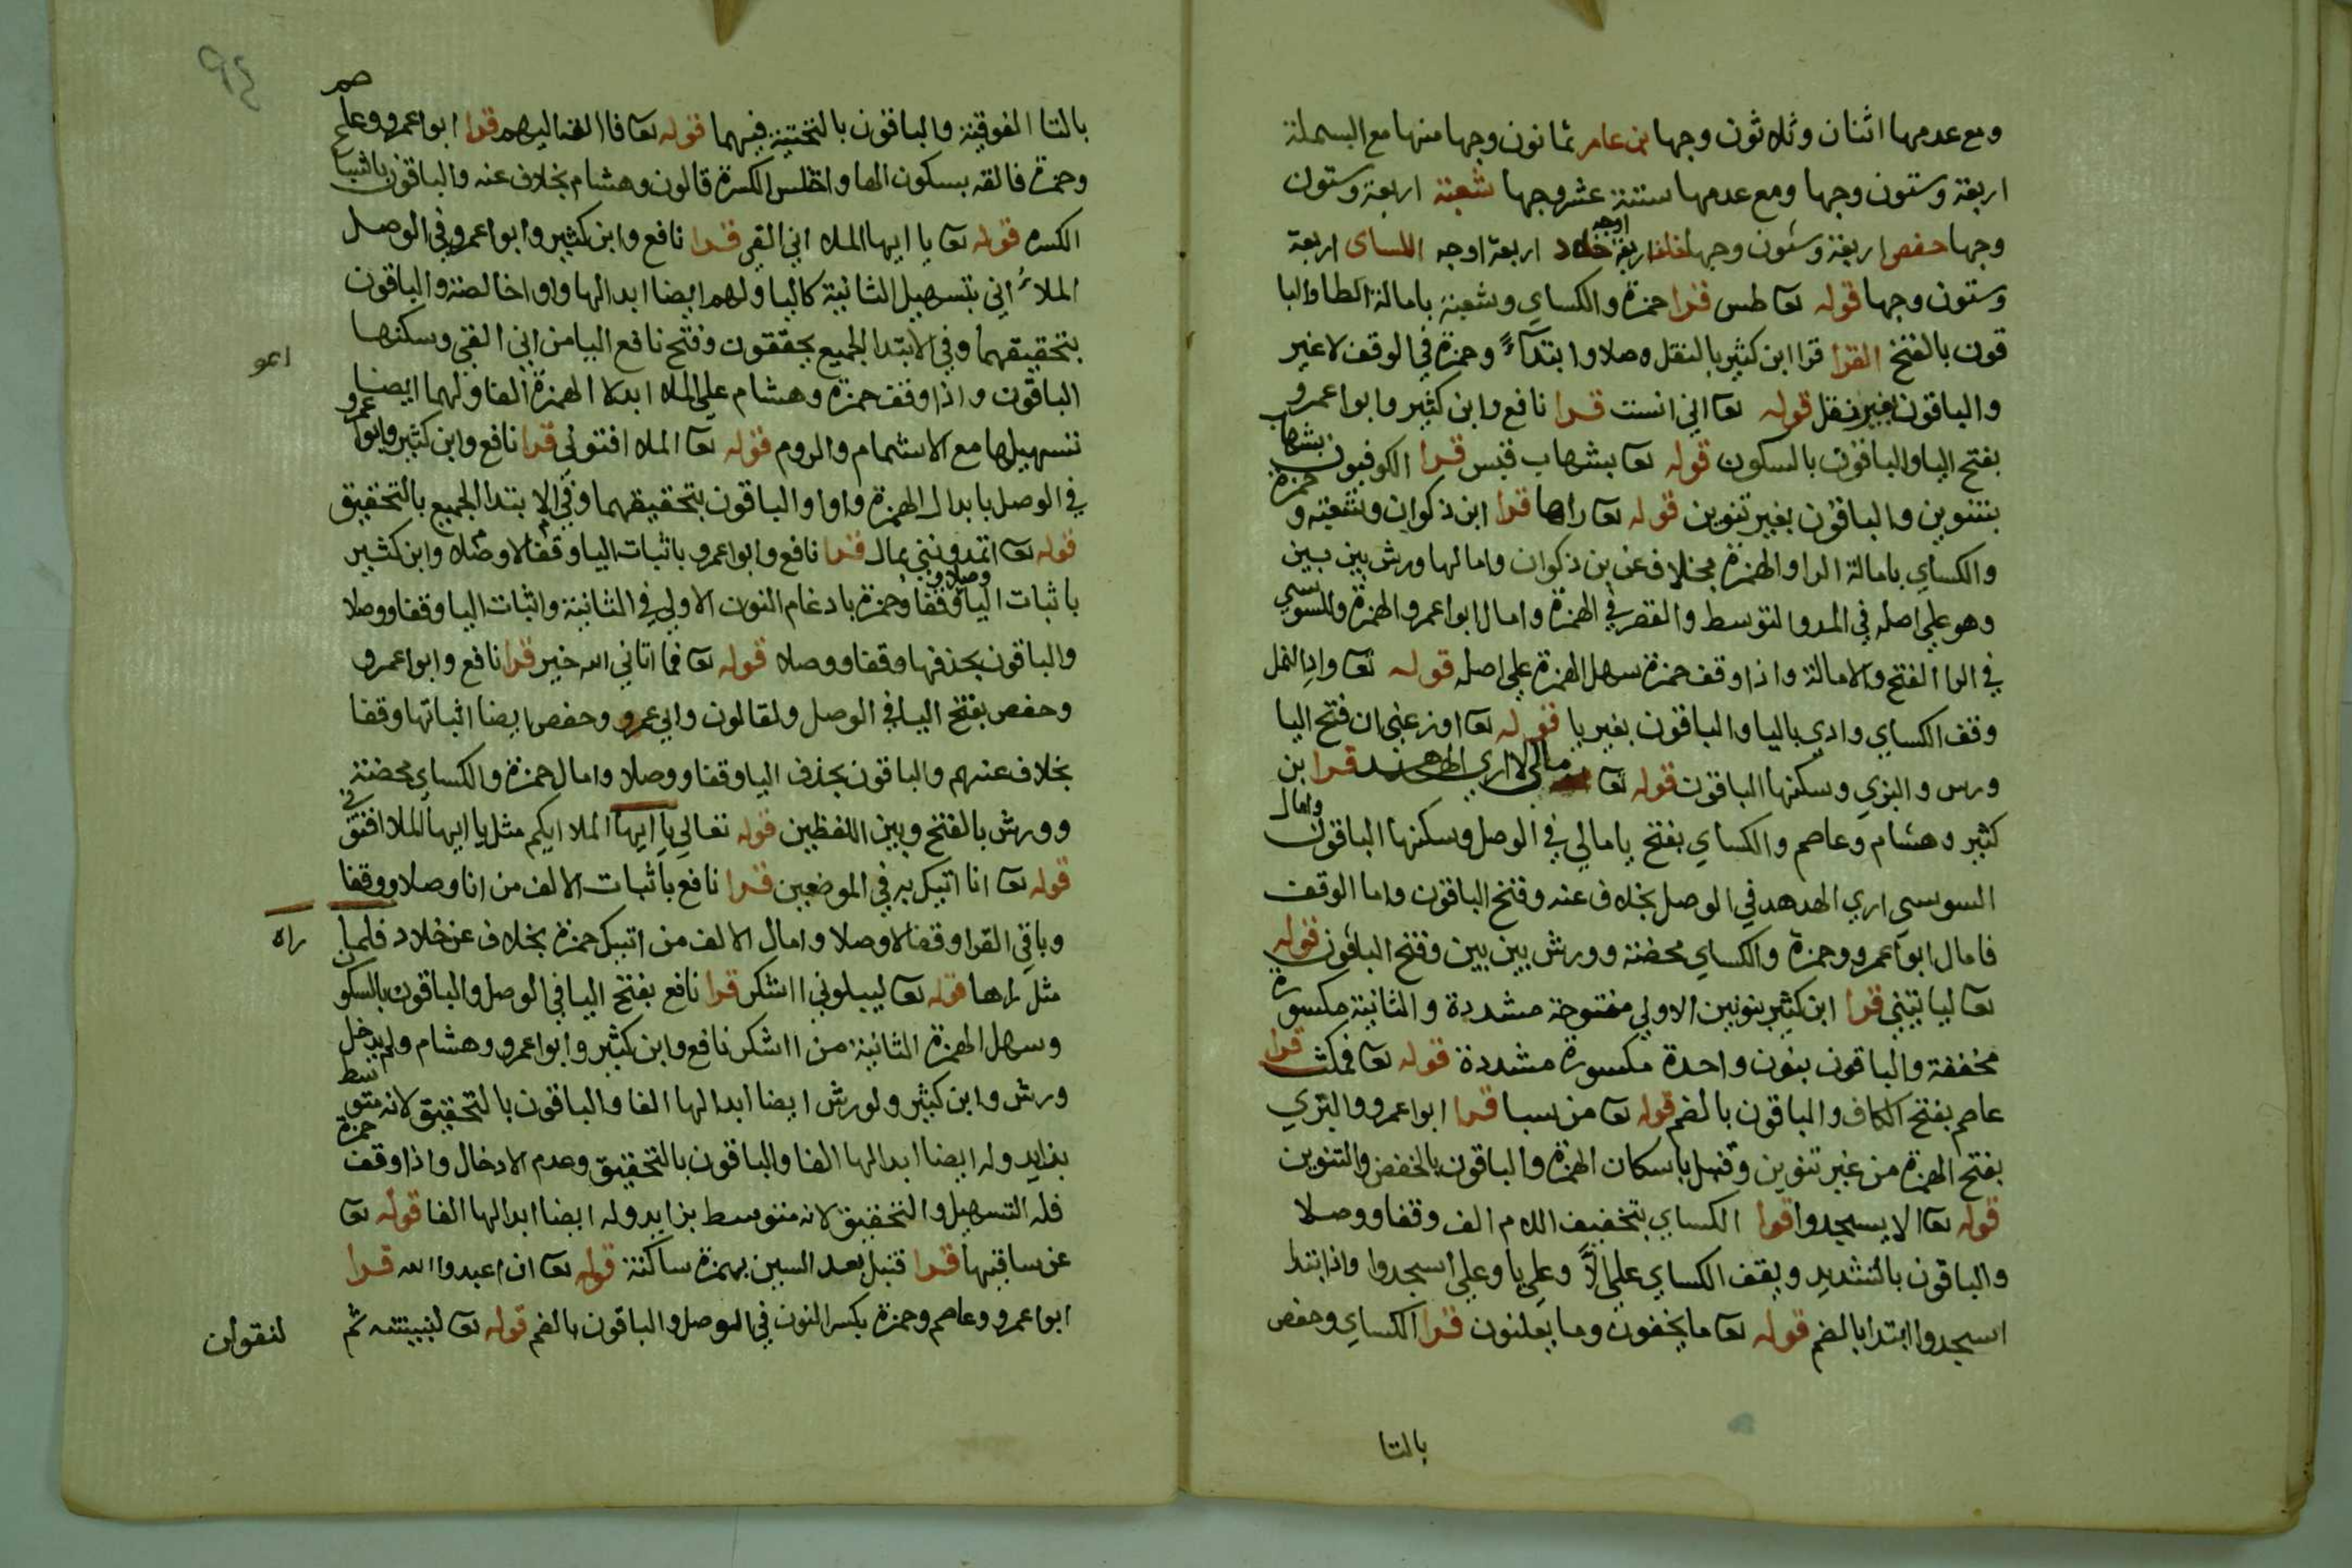 ومع عدمها اثنان وثلاثون وجها بن عامر ثمانون وجها منها مع البسملة
اربعة وستون وجها ومع عدمها ستة عشر وجها شعبة اربعة وستون
وجها حفص اربعة وستون وجها خلف اربعة اوجه خلاد اربعة اوجه الكساى اربعة
وستون وجها قوله تعا طس قرا حمزة والكساي وشعبة بامالة الطا والبا
قون بالفتح القرا قرا ابن كثير بالنقل وصلا وابتدآءً وحمزة في الوقف لا غير
والباقون بغير نقل قوله تعا اني انست قرا نافع وابن كثير وابوا عمرو
بفتح اليا والباقون بالسكون قوله تعا بشهاب قبس قرا الكوفيون بشهاب
بتنوين والباقون بغير تنوين قوله تعا راها قرا ابن ذكوان وشعبة وحمزة
والكساي بامالة الرا والهمزة بخلاف عن بن ذكوان وامالها ورش بين بين
وهو علي اصله في المد والتوسط والقصر في الهمزة وامال ابوا عمرو الهمزة وللسوسي
في الرا الفتح والامالة واذا وقف حمزة سهل الهمزة علي اصله قوله تعا واد النمل
وقف الكساي وادي باليا والباقون بغير يا قوله تعا اوزعني ان فتح اليا
ورس والبزي وسكنها الباقون قوله تعا مالي لا اري الهدهد قرا بن
كثير وهشام وعاصم والكساي بفتح يا مالي في الوصل وسكنها الباقون وامال
السوسي اري الهدهد في الوصل بخلاف عنه وفتح الباقون واما الوقف
فامال ابوا عمرو وحمزة والكساي محضة وورش بين بين وفتح الباقون قوله
تعا ليا تيني قرا ابن كثير بنونين الاولي مفتوحة مشددة والثانية مكسورة
مخففة والباقون بنون واحدة مكسورة مشددة قوله تعا فمكث قرا
عاصم بفتح الكاف والباقون بالضم قوله تعا من سبا قرا ابوا عمرو والبزي
بفتح الهمزة من غير تنوين وقنبل باسكان الهمزة والباقون بالخفض والتنوين
قوله تعا الا يسجدوا قرا الكساي بتخفيف اللام الف وقفا ووصلا
والباقون بالتشديد ويقف الكساي علي الاً وعلي يا وعلي اسجدوا واذا ابتدا
اسجدوا ابتدا بالضم قوله تعا ما يخفون وما يعلنون قرا الكساي وحفص
بالتا
بالتا الفوقية والباقون بالتحتية فيهما قوله تعا فالقه اليهم قرا ابوا عمرو وعاصم
وحمزة فالقه بسكون الها واختلس الكسرة قالون وهشام بخلاف عنه والباقون باشباع
الكسره قوله تعا يا ايها الملا اني القي قرا نافع وابن كثير وابوا عمرو في الوصل
الملاُ اني بتسهيل الثانية كاليا ولهم ايضا ابدالها واوا خالصة والباقون
بتحقيقهما وفي الابتدا الجميع يحققون وفتح نافع اليا من اني القي وسكنها
الباقون واذا وقف حمزة وهشام علي الملا ابدلا الهمزة الفا ولهما ايضا
تسهيلها مع الاشمام والروم قوله تعا الملا افتوني قرا نافع وابن كثير وابوا عمرو
في الوصل بابدال الهمزة واوا والباقون بتحقيقهما وفي الابتدا الجميع بالتحقيق
قوله تعا اتمدونني بمال قرا نافع وابوا عمرو باثبات اليا وقفا لا وصلا وابن كثير
باثبات اليا وقفا وصلا و وحمزة بادغام النون الاولي في الثانية واثبات اليا وقفا ووصلا
والباقون بحذفها وقفا ووصلا قوله تعا فما اتاني الله خير قرا نافع وابوا عمرو
وحفص بفتح اليا في الوصل ولقالون وابي عمرو وحفص ايضا اثباتها وقفا
بخلاف عنهم والباقون بحذف اليا وقفا ووصلا وامال حمزة والكساي محضة
وورش بالفتح وبين اللفظين قوله تعالي يا ايها الملا ايكم مثل يا ايها الملا افتوني
قوله تعا انا اتيك به في الموضعين قرا نافع باثبات الالف من انا وصلا ووقفا
وباقي القرا وقفا لا وصلا وامال الالف من اتيك حمزة بخلاف عن خلاد فلما راه
مثل راها قوله تعا ليبلوني ااشكر قرا نافع بفتح اليا في الوصل والباقون بالسكون
وسهل الهمزة الثانية من ااشكر نافع وابن كثير وابوا عمرو وهشام ولم يدخل
ورش وابن كثير ولورش ايضا ابدالها الفا والباقون بالتحقيق لانه متوسط
بزايد وله ايضا ابدالها الفا والباقون بالتحقيق وعدم الادخال واذا وقف حمزة
فله التسهيل والتحقيق لانه متوسط بزايد وله ايضا ابدالها الفا قوله تعا
عن ساقيها قرا قنبل بعد السين بهمزة ساكنة قوله تعا ان اعبدوا الله قرا
ابوا عمرو وعاصم وحمزة بكسر النون في الوصل والباقون بالضم قوله تعا لنبيتنه ثم
لنقولن